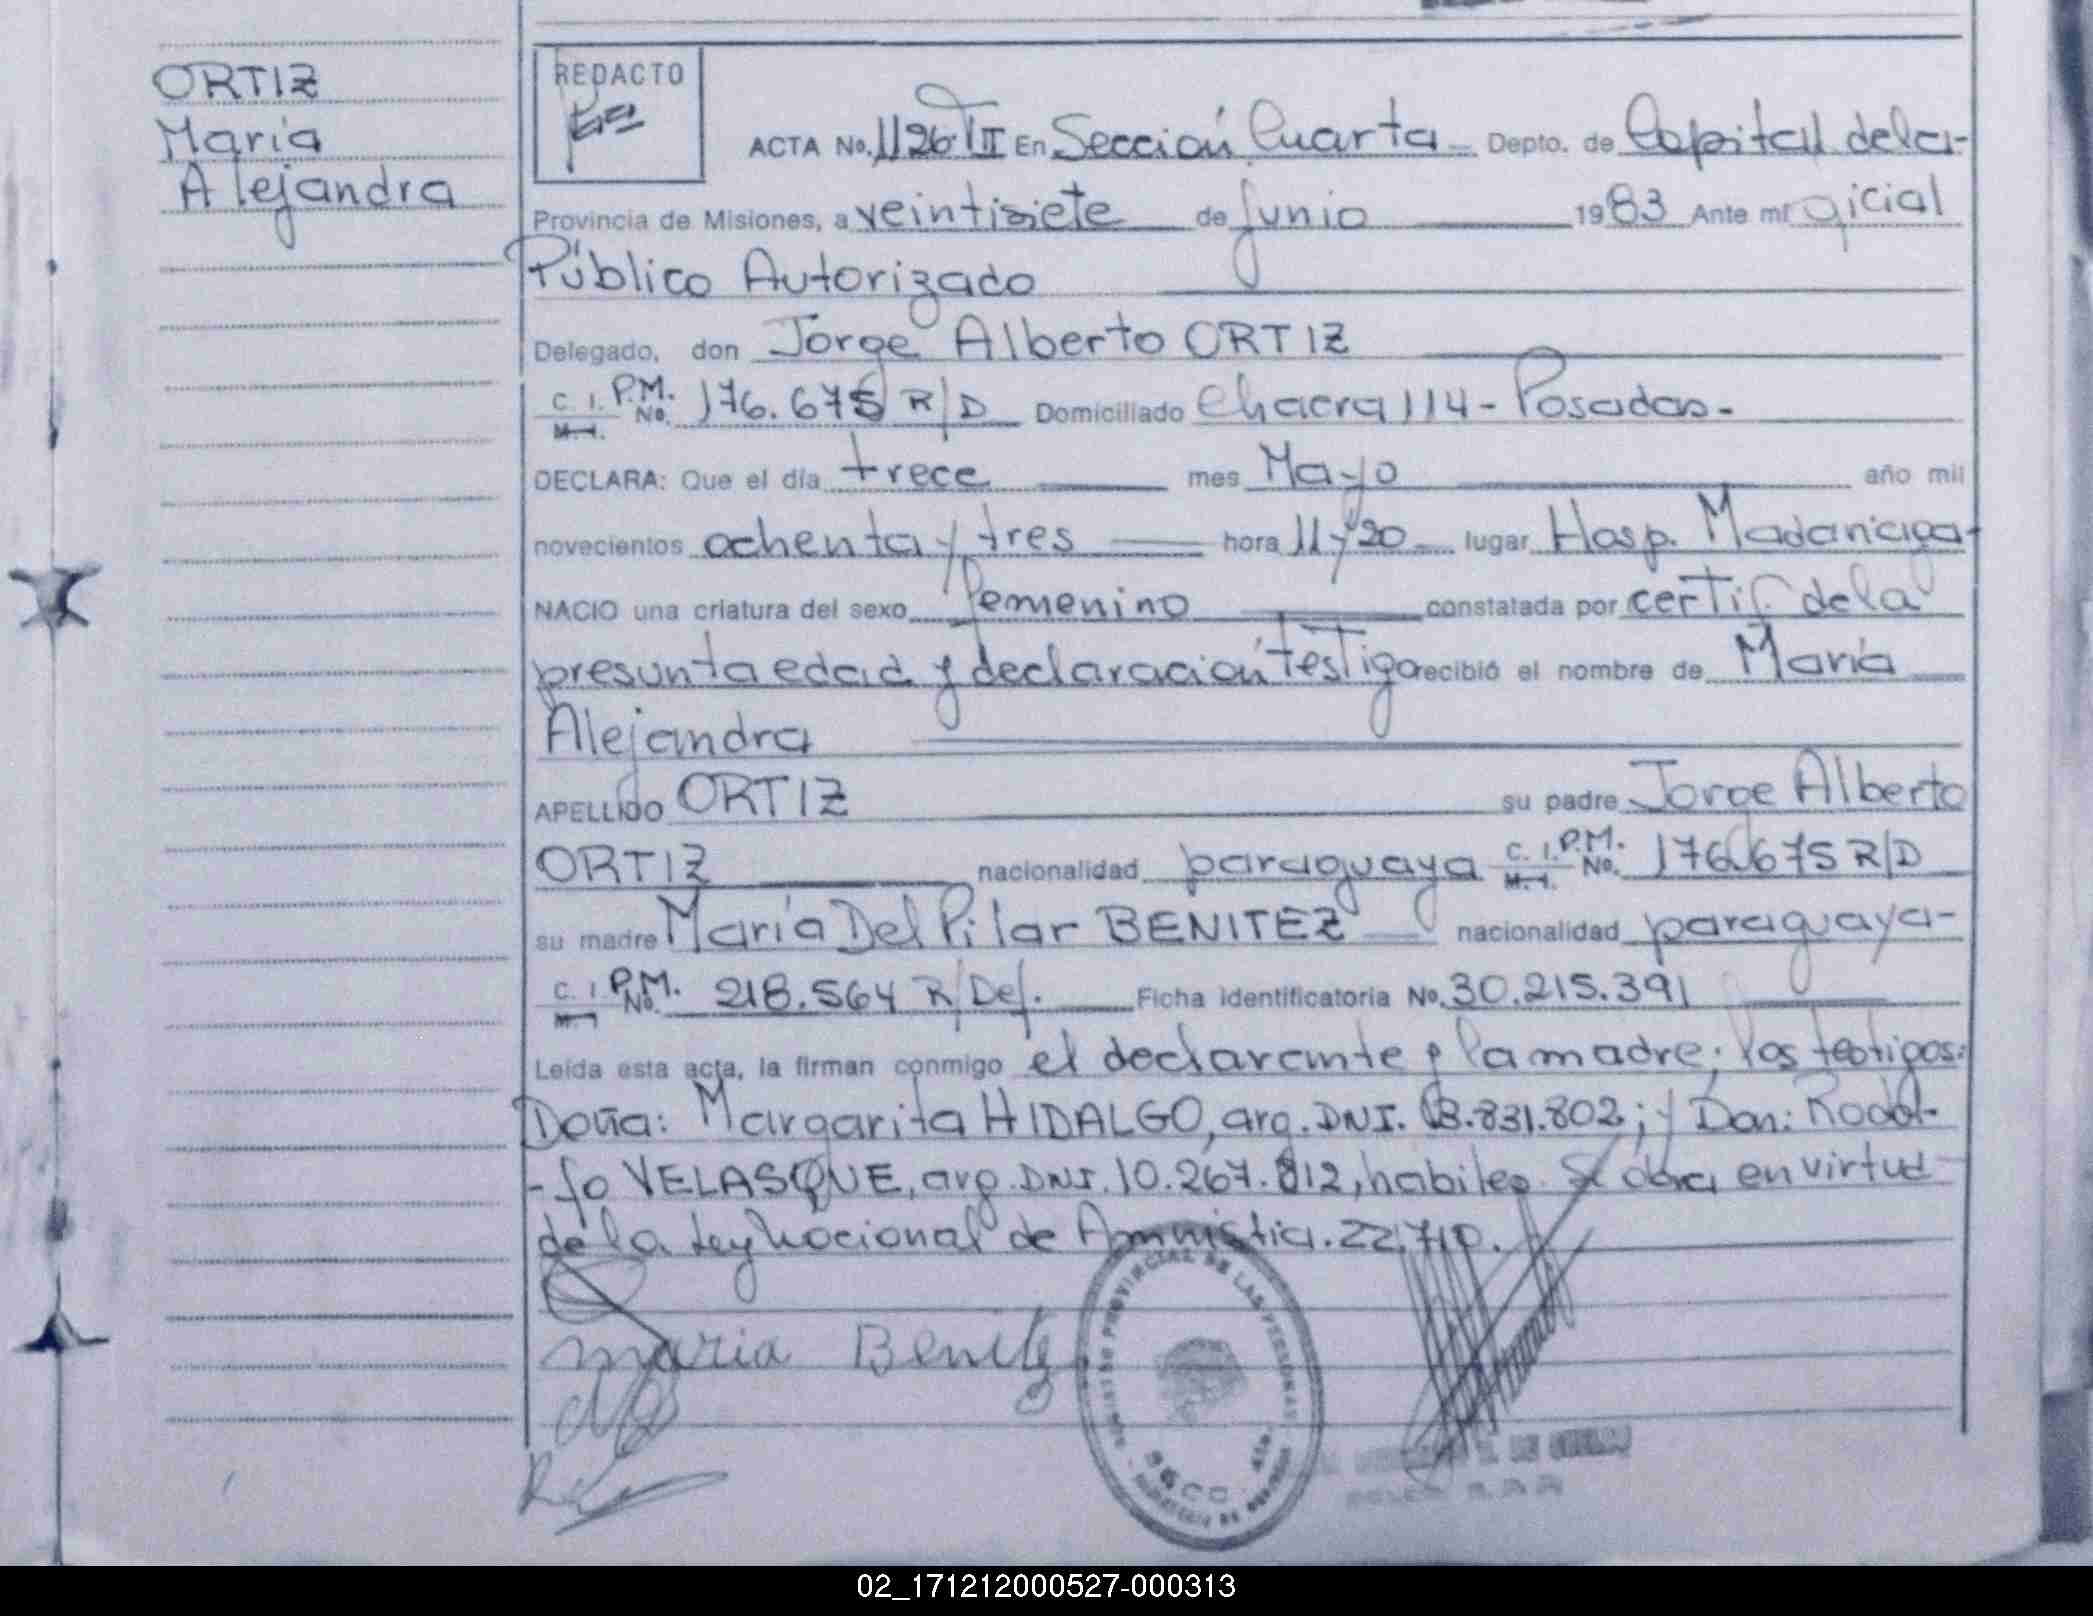 ORTIZ
María
Alejandra
REDACTO
ACTA No. 1126 TII En Sección Cuarta Depto. de Capital de la
Provincia de Misiones, a veintisiete de junio 1983 Ante mí oficial
Público Autorizado
Delegado, don Jorge Alberto ORTIZ
C. I. P.M. No. 176.675 R/D Domiciliado Chacra 114 - Posadas -
M. I.
DECLARA: Que el día trece mes Mayo año mil
novecientos ochenta y tres hora 11 y 20 lugar Hosp. Madariaga
NACIO una criatura del sexo femenino constatada por certif de la
presunta edad y declaración testigo recibió el nombre de María
Alejandra
APELLIDO ORTIZ su padre Jorge Alberto
ORTIZ nacionalidad paraguaya C. I. P.M. No. 176.675 R/D
M. I.
su madre María Del Pilar BENITEZ nacionalidad paraguaya -
C. I. P.M. No. 218.564 R/Def. Ficha identificatoria No. 30.215.391
Leída esta acta, la firman conmigo el declarante y la madre; los testigos:
Doña: Margarita HIDALGO, arg. DNI. 831.802; y Don: Rodol-
-fo VELASQUE, arg. DNI. 10.267.812, habiles. Se obra en virtud
de la Ley Nacional de Amnistia. 22.710.
maria Benitez
PROVINCIAL DE LAS PERSONAS
02_171212000527-000313